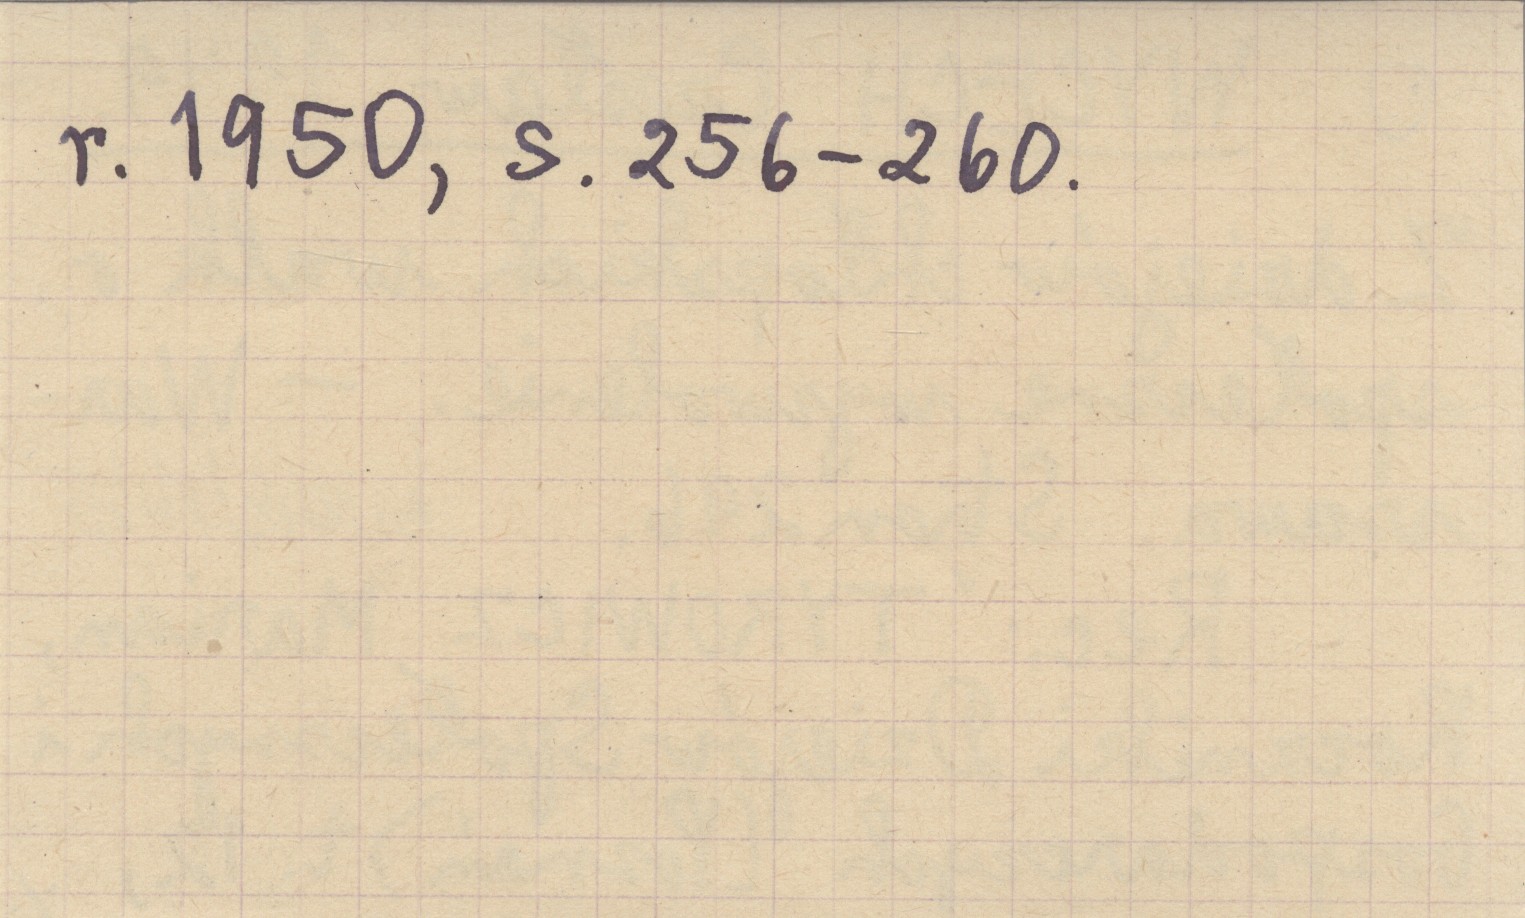 r. 1950, s. 256-260.